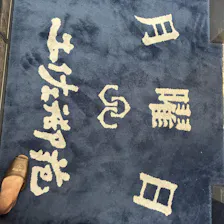 月曜日
土佐御苑